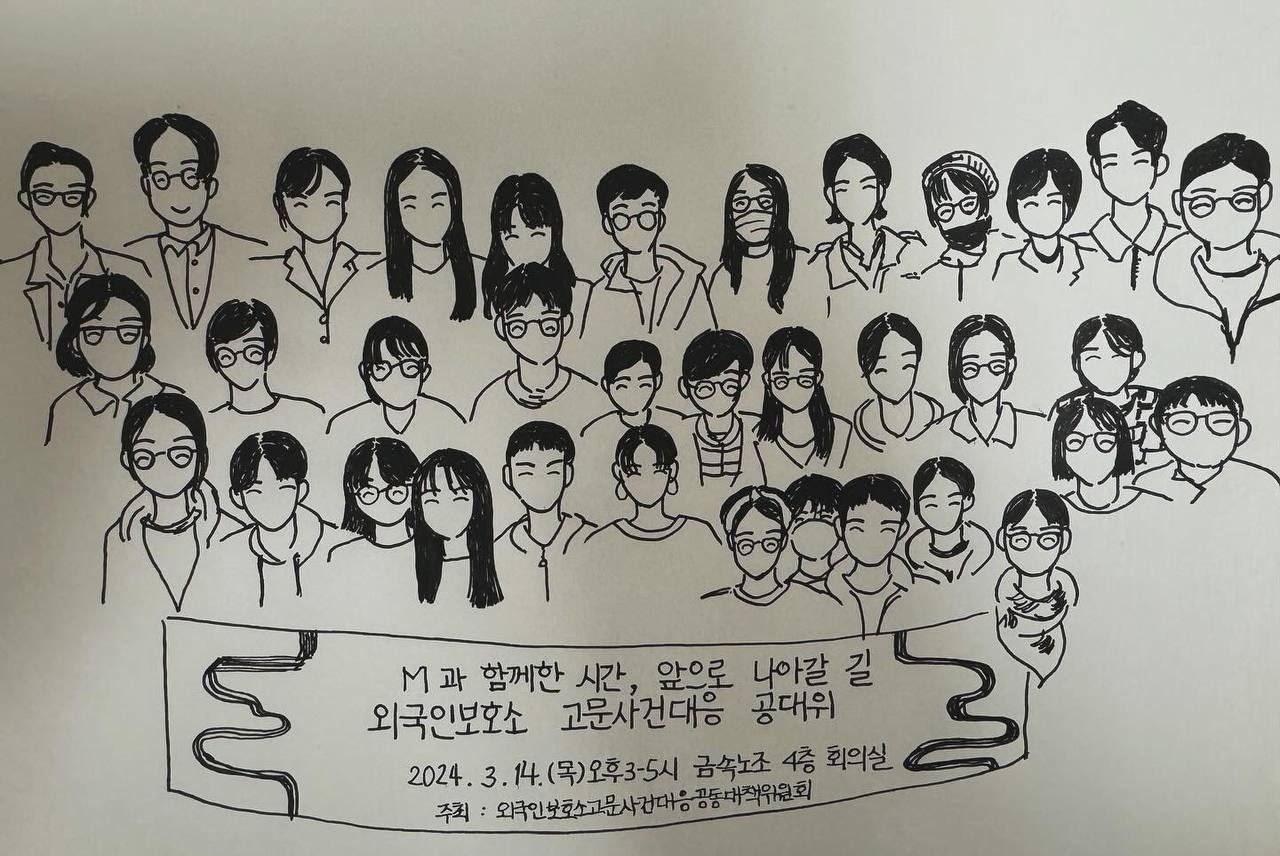 M과 함께한 시간, 앞으로 나아갈 길
외국인보호소 고문사건대응 공대위
2024. 3. 14.(목)오후3-5시 금속노조 4층 회의실
주최 : 외국인보호소고문사건대응공동대책위원회